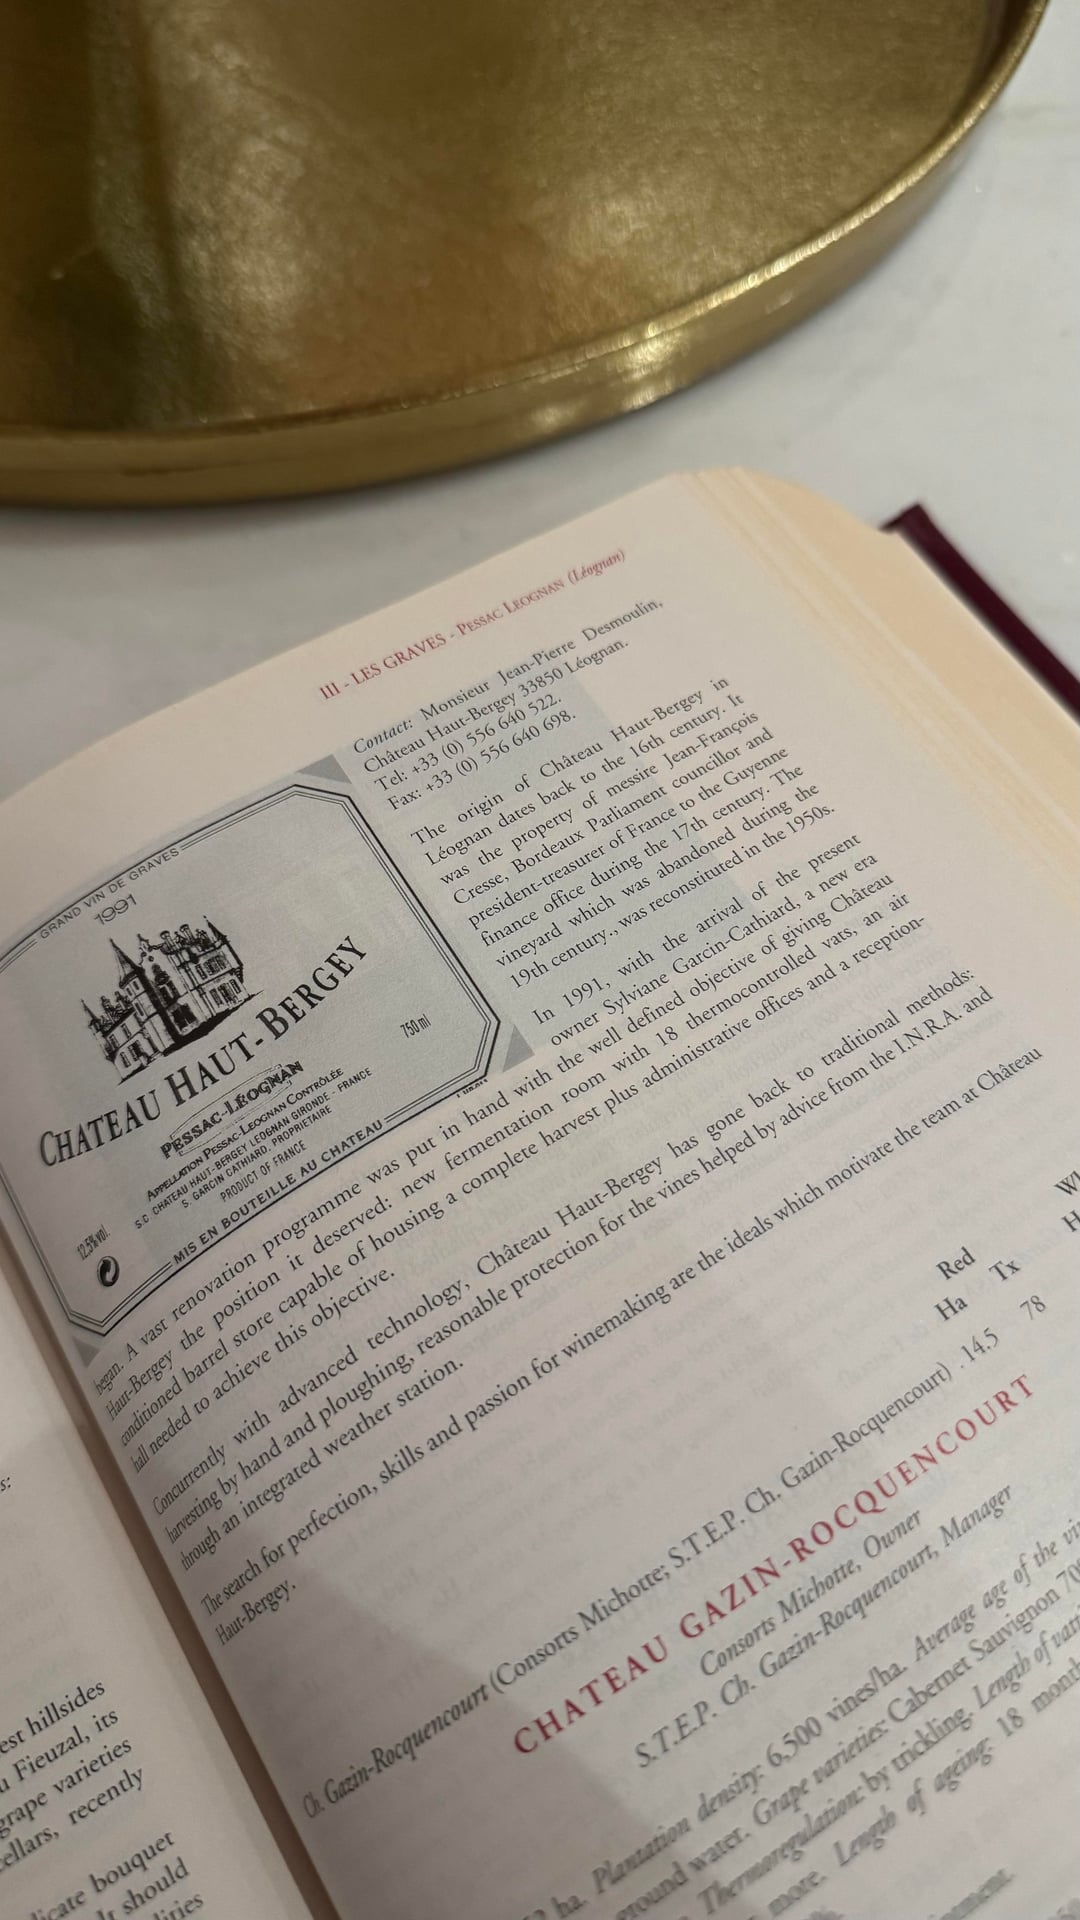 III - LES GRAVES - PESSAC LEOGNAN (Léognan)
GRAND VIN DE GRAVES
1991
CHATEAU HAUT-BERGEY
750 ml
PESSAC-LÉOGNAN
APPELLATION PESSAC-LEOGNAN CONTRÔLÉE
S.C. CHATEAU HAUT-BERGEY LEOGNAN GIRONDE - FRANCE
S. GARCIN CATHIARD, PROPRIETAIRE
PRODUCT OF FRANCE
12,5% vol.
MIS EN BOUTEILLE AU CHATEAU
Contact: Monsieur Jean-Pierre Desmoulin,
Château Haut-Bergey 33850 Léognan.
Tel: +33 (0) 556 640 522.
Fax: +33 (0) 556 640 698.
The origin of Château Haut-Bergey in
Léognan dates back to the 16th century. It
was the property of messire Jean-François
Cresse, Bordeaux Parliament councillor and
president-treasurer of France to the Guyenne
finance office during the 17th century. The
vineyard which was abandoned during the
19th century., was reconstituted in the 1950s.
In 1991, with the arrival of the present
owner Sylviane Garcin-Cathiard, a new era
began. A vast renovation programme was put in hand with the well defined objective of giving Château
Haut-Bergey the position it deserved: new fermentation room with 18 thermocontrolled vats, an air
conditioned barrel store capable of housing a complete harvest plus administrative offices and a reception-
hall needed to achieve this objective.
Concurrently with advanced technology, Château Haut-Bergey has gone back to traditional methods:
harvesting by hand and ploughing, reasonable protection for the vines helped by advice from the I.N.R.A. and
through an integrated weather station.
The search for perfection, skills and passion for winemaking are the ideals which motivate the team at Château
Haut-Bergey.
Red
Ha Tx
Ch. Gazin-Rocquencourt (Consorts Michotte; S.T.E.P. Ch. Gazin-Rocquencourt) . 14.5 78
CHATEAU GAZIN-ROCQUENCOURT
Consorts Michotte, Owner
S.T.E.P. Ch. Gazin-Rocquencourt, Manager
ha. Plantation density: 6,500 vines/ha. Average age of the
ground water. Grape varieties: Cabernet Sauvignon
Thermoregulation: by trickling. Length of
more. Length of ageing: 18
hillsides
Fieuzal, its
grape varieties
cellars, recently
bouquet
should